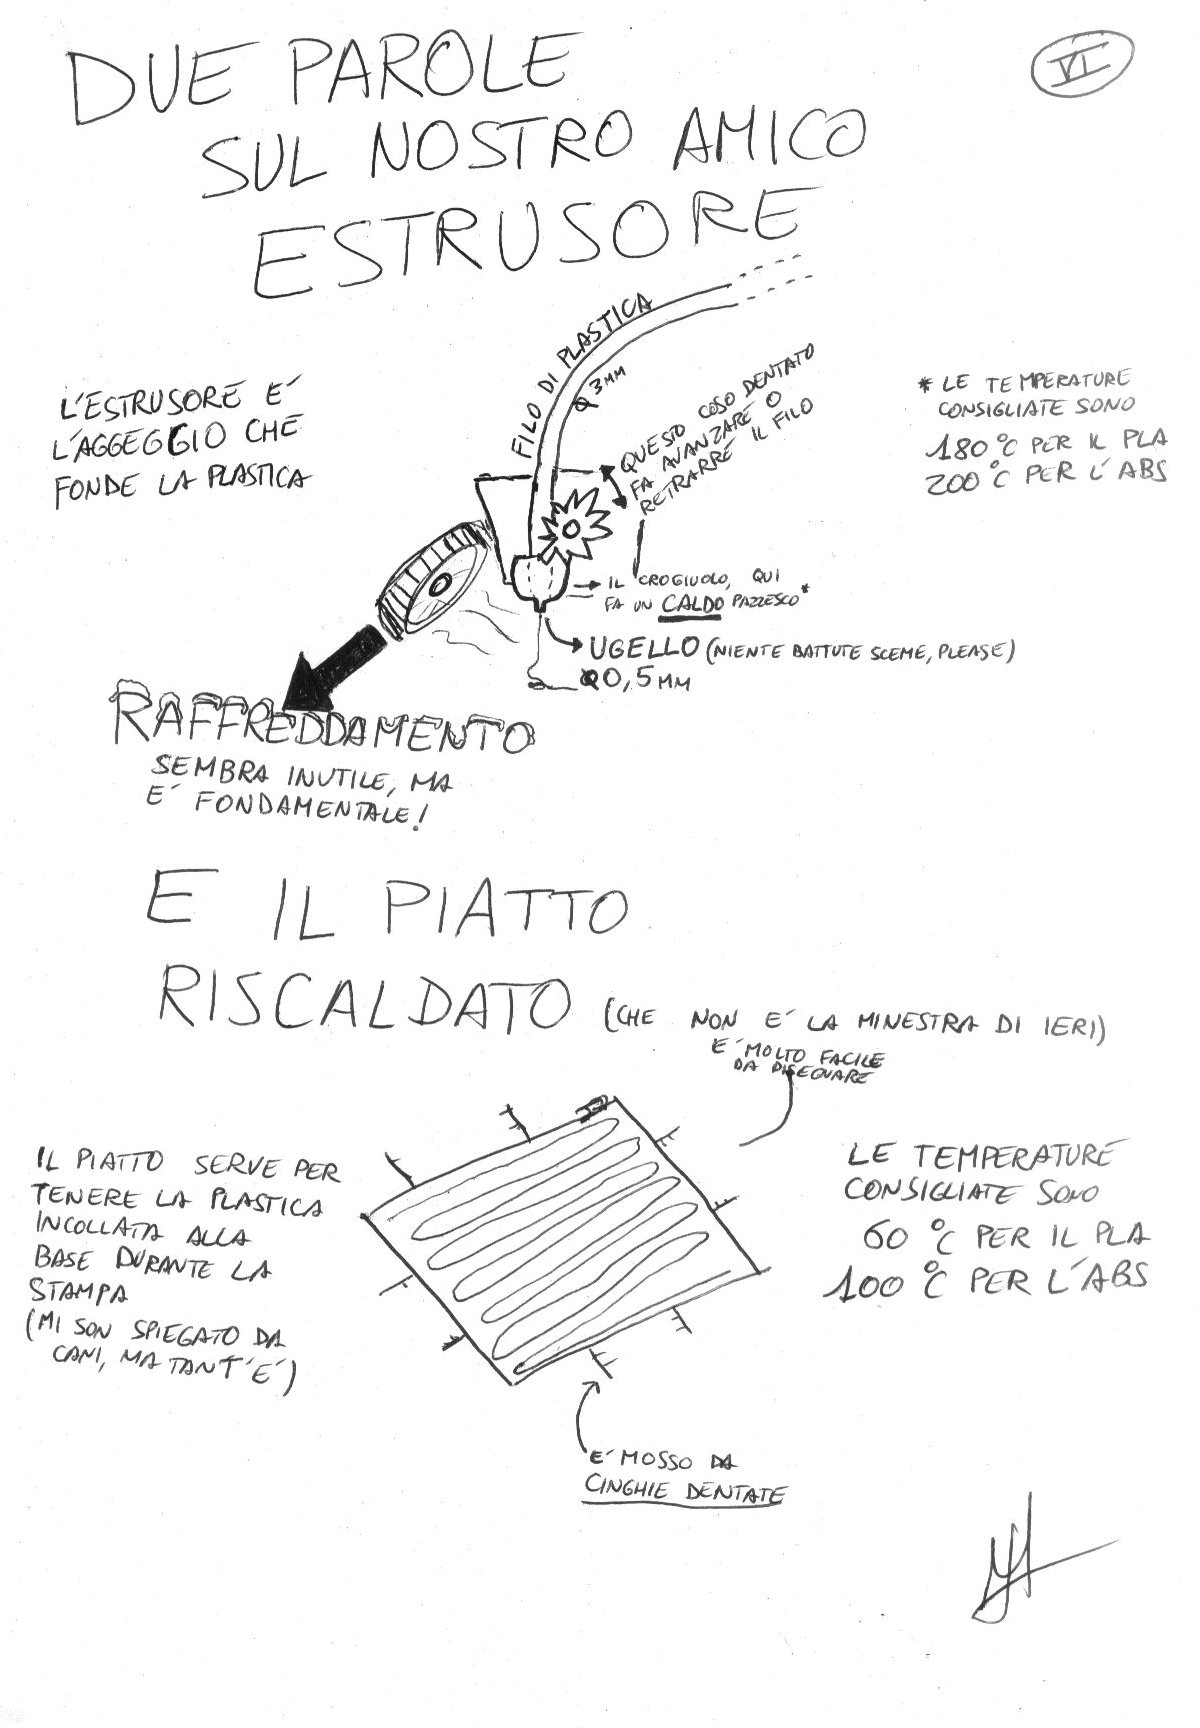 VI
DUE PAROLE
SUL NOSTRO AMICO
ESTRUSORE
L'ESTRUSORE E'
L'AGGEGGIO CHE
FONDE LA PLASTICA
FILO DI PLASTICA
Ø 3 MM
QUESTO COSO DENTATO
FA AVANZARE O
RETRARRE IL FILO
* LE TEMPERATURE
CONSIGLIATE SONO
180°C PER IL PLA
200°C PER L'ABS
IL CROGIUOLO, QUI
FA UN CALDO PAZZESCO*
UGELLO (NIENTE BATTUTE SCEME, PLEASE)
Ø0,5 MM
RAFFREDDAMENTO
SEMBRA INUTILE, MA
E' FONDAMENTALE!
E IL PIATTO
RISCALDATO (CHE NON E' LA MINESTRA DI IERI)
E' MOLTO FACILE
DA DISEGNARE
IL PIATTO SERVE PER
TENERE LA PLASTICA
INCOLLATA ALLA
BASE DURANTE LA
STAMPA
(MI SON SPIEGATO DA
CANI, MA TANT'E')
LE TEMPERATURE
CONSIGLIATE SONO
60°C PER IL PLA
100°C PER L'ABS
E' MOSSO DA
CINGHIE DENTATE